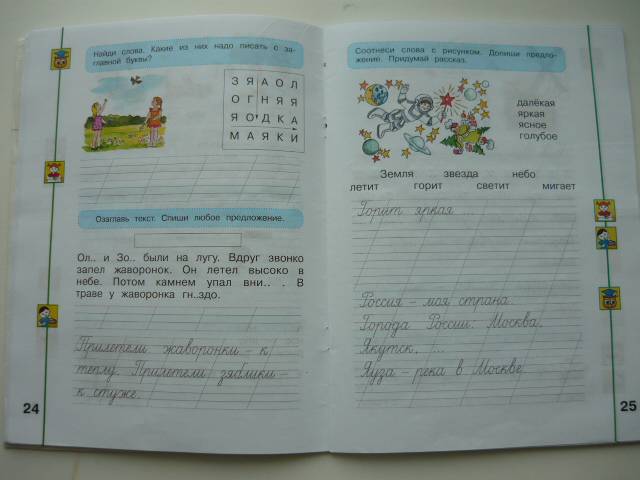 Найди слова. Какие из них надо писать с за-
главной буквы?
З Я А О Л
О Г Н Я Я
Я О Д К А
М А Я К И
Озаглавь текст. Спиши любое предложение.
Ол.. и Зо.. были на лугу. Вдруг звонко
запел жаворонок. Он летел высоко в
небе. Потом камнем упал вни.. . В
траве у жаворонка гн..здо.
Прилетели жаворонки – к
теплу. Прилетели зяблики –
к стуже.
24
Соотнеси слова с рисунком. Допиши предло-
жение. Придумай рассказ.
далёкая
яркая
ясное
голубое
Земля звезда небо
летит горит светит мигает
Горит яркая ...
Россия – моя страна.
Города России: Москва,
Якутск, ...
Яуза – река в Москве.
25